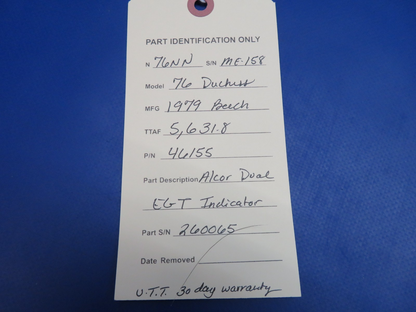 PART IDENTIFICATION ONLY
N 76NN S/N ME-158
Model 76 Duchess
MFG 1979 Beech
TTAF 5,631.8
P/N 46155
Part Description Alcor Dual
EGT Indicator
Part S/N 260065
Date Removed
U.T.T. 30 day warranty